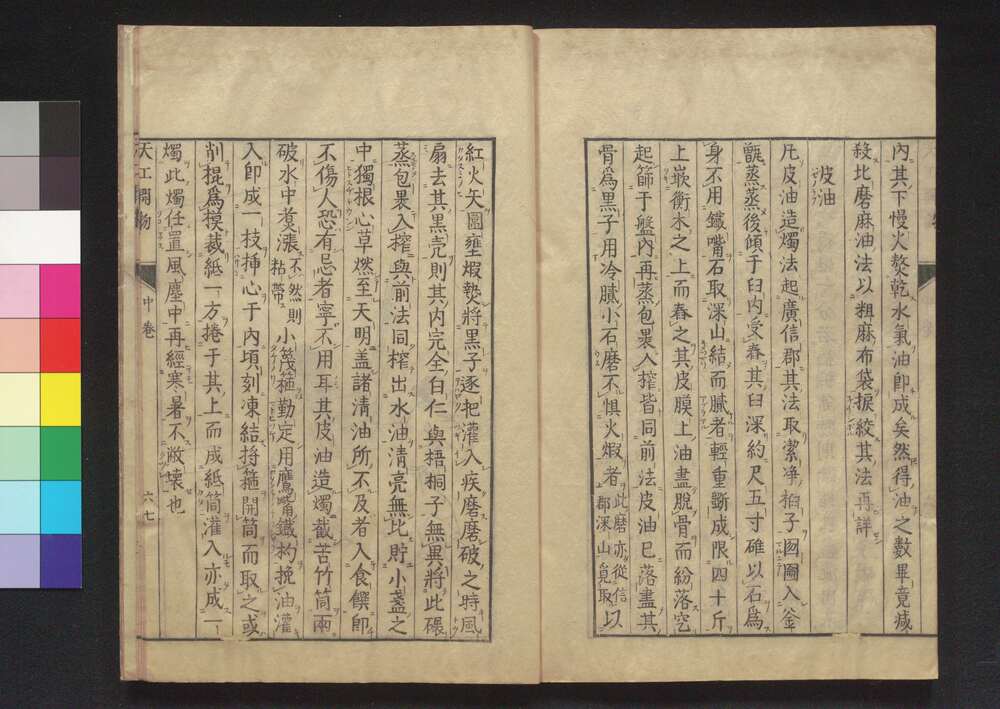 內其下慢火熬乾水氣油卽成矣然得油之數畢竟減
殺北磨麻油法以粗麻布袋捩絞其法再詳
皮油
凡皮油造燭法起廣信郡其法取潔淨桕子囫圇入釜
甑蒸蒸後傾于臼內受舂其臼深約尺五寸碓以石爲
身不用鐵嘴石取深山結而膩者輕重斲成限四十斤
上嵌衡木之上而舂之其皮膜上油盡脫骨而紛落空
起篩于盤內再蒸包裹入搾皆同前法皮油已落盡其
骨爲黑子用冷膩小石磨不懼火煆者 此磨亦從信郡深山覓取 以
紅火矢圍壅煆熱將黑子逐把灌入疾磨磨破之時風
扇去其黑殼則其內完全白仁與梧桐子無異將此碾
蒸包裹入搾與前法同搾出水油清亮無比貯小盞之
中獨根心草燃至天明盖諸清油所不及者入食饌卽
不傷人恐有忌者寧不用耳其皮油造燭截苦竹筒兩
破水中煑漲 不然則粘帶 小篾箍勒定用鷹嘴鐵杓挽油灌
入卽成一枝揷心于內頃刻凍結捋箍開筒而取之或
削棍爲模裁紙一方捲于其上而成紙筒灌入亦成一
燭此燭任置風塵中再經寒暑不敝壞也
天工開物
中卷
六七